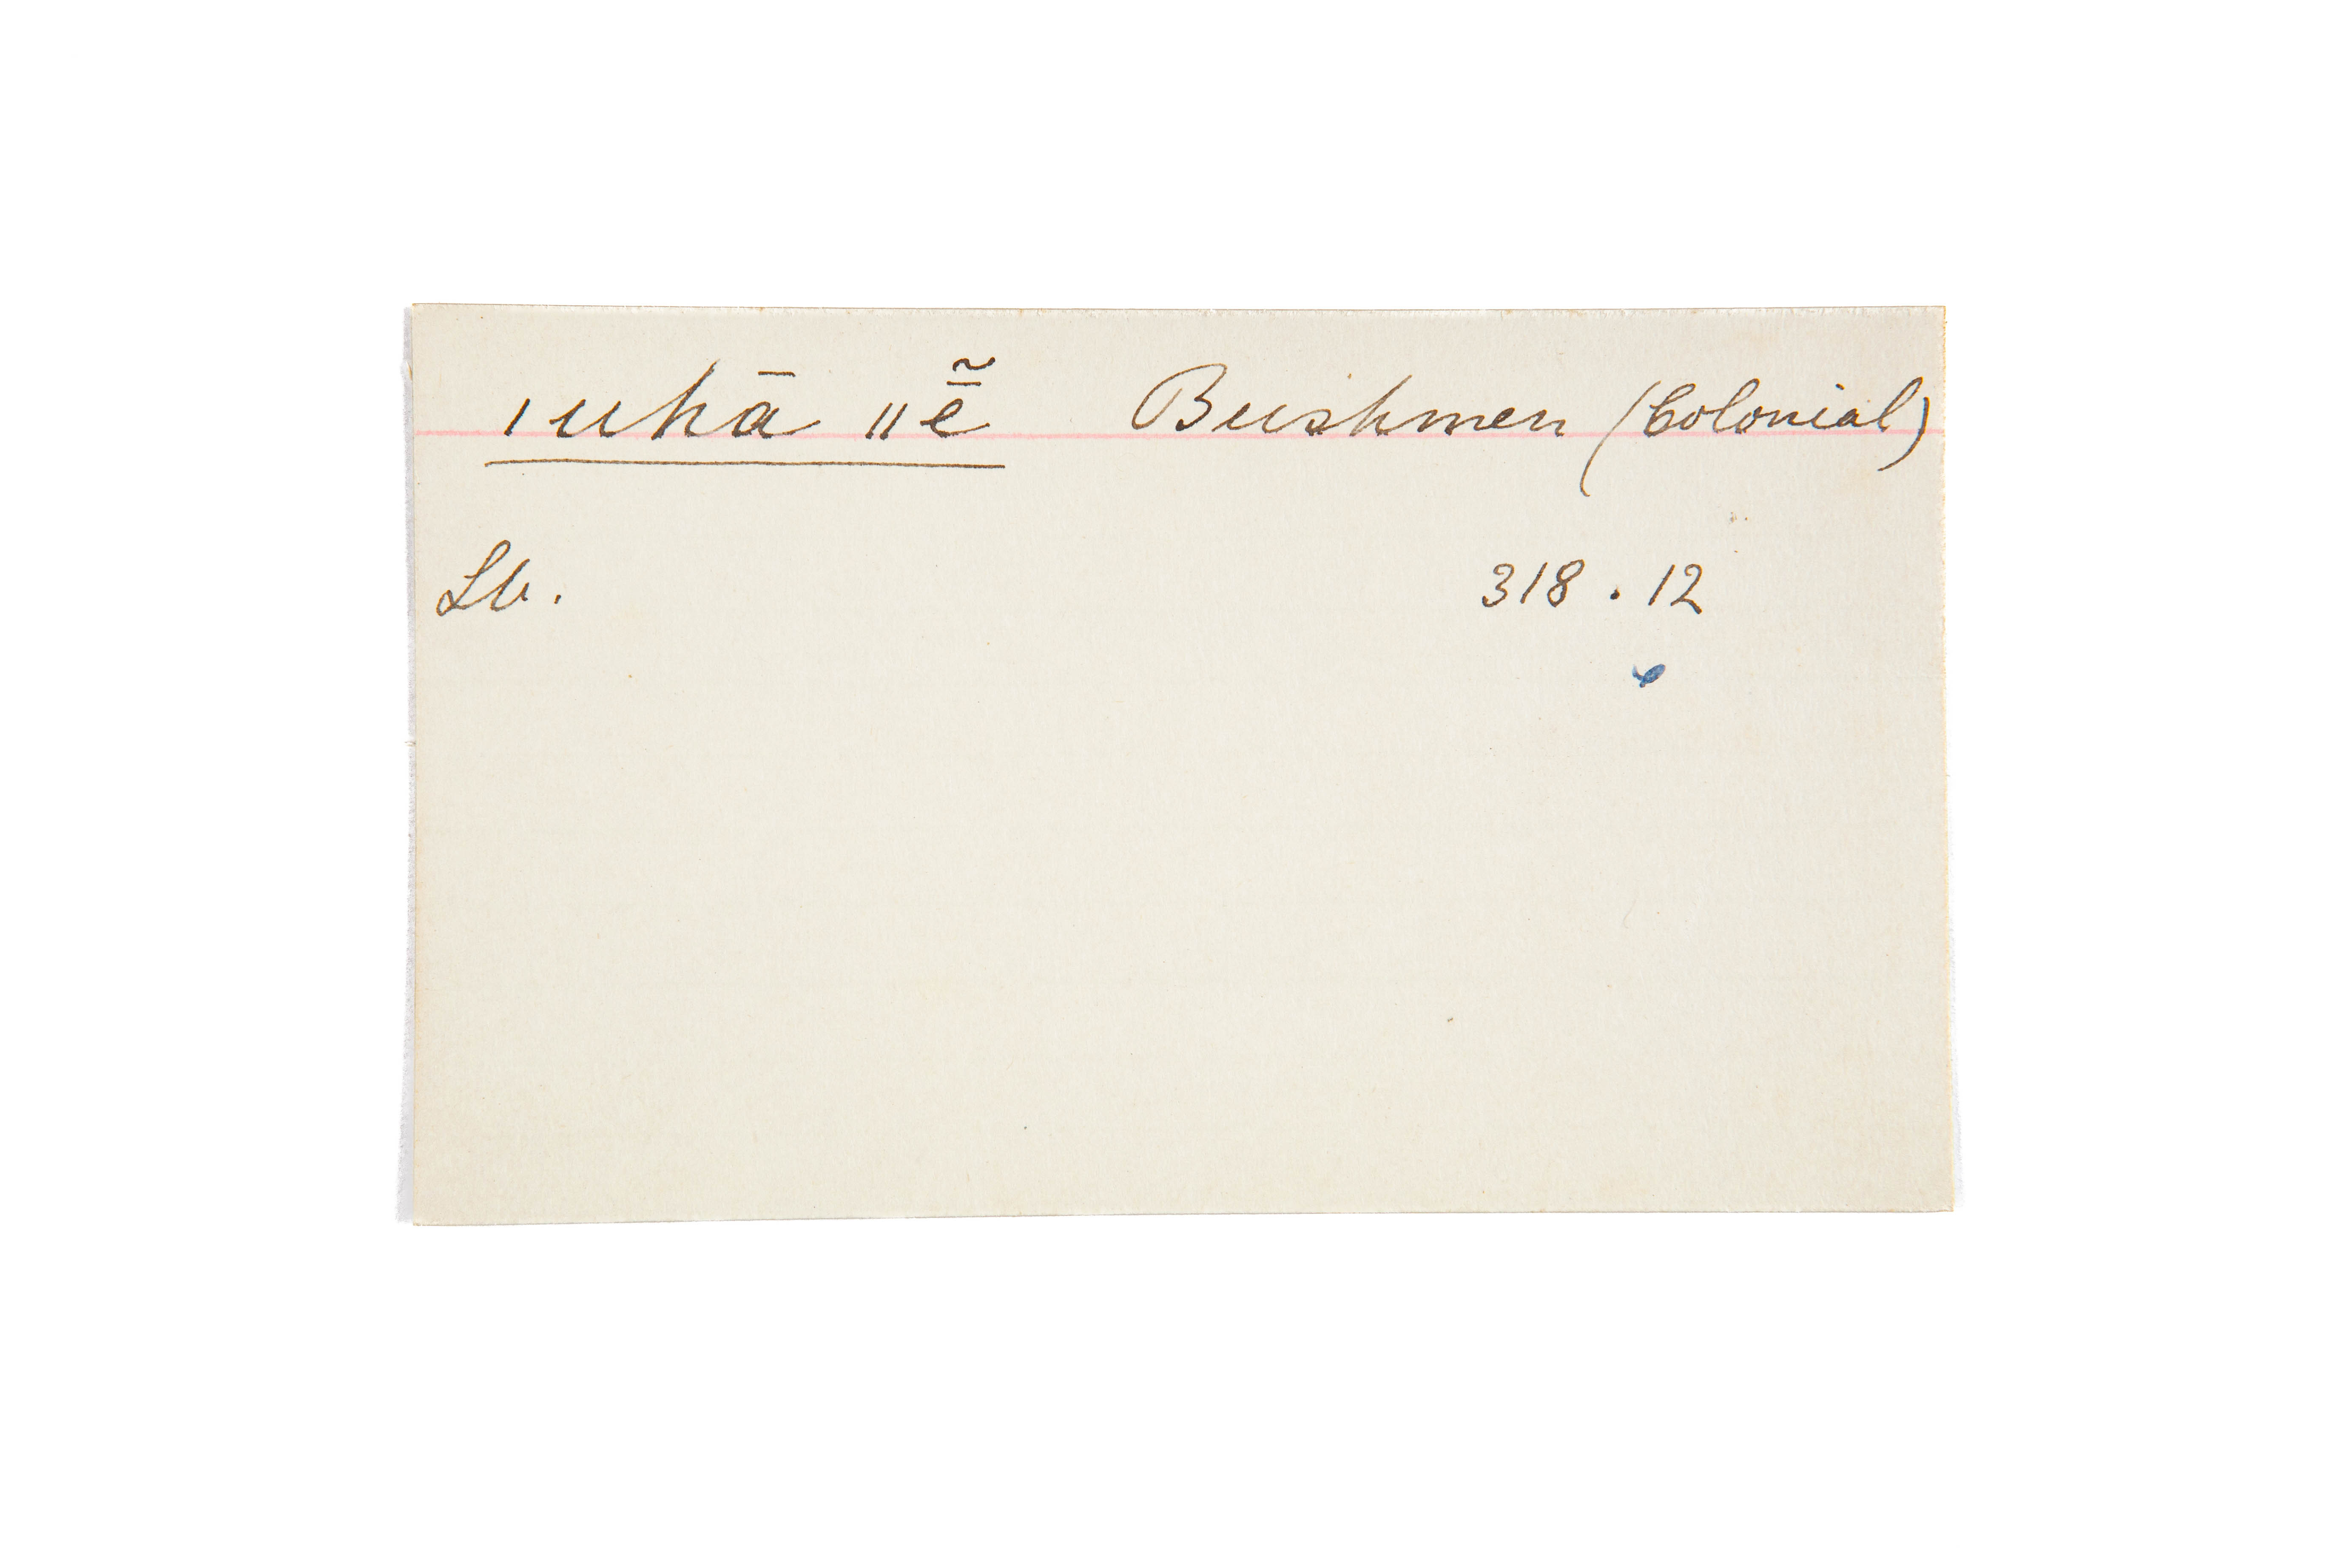 ǀuhā ǁē̃ Bushmen (Colonial)
Lb. 318 . 12